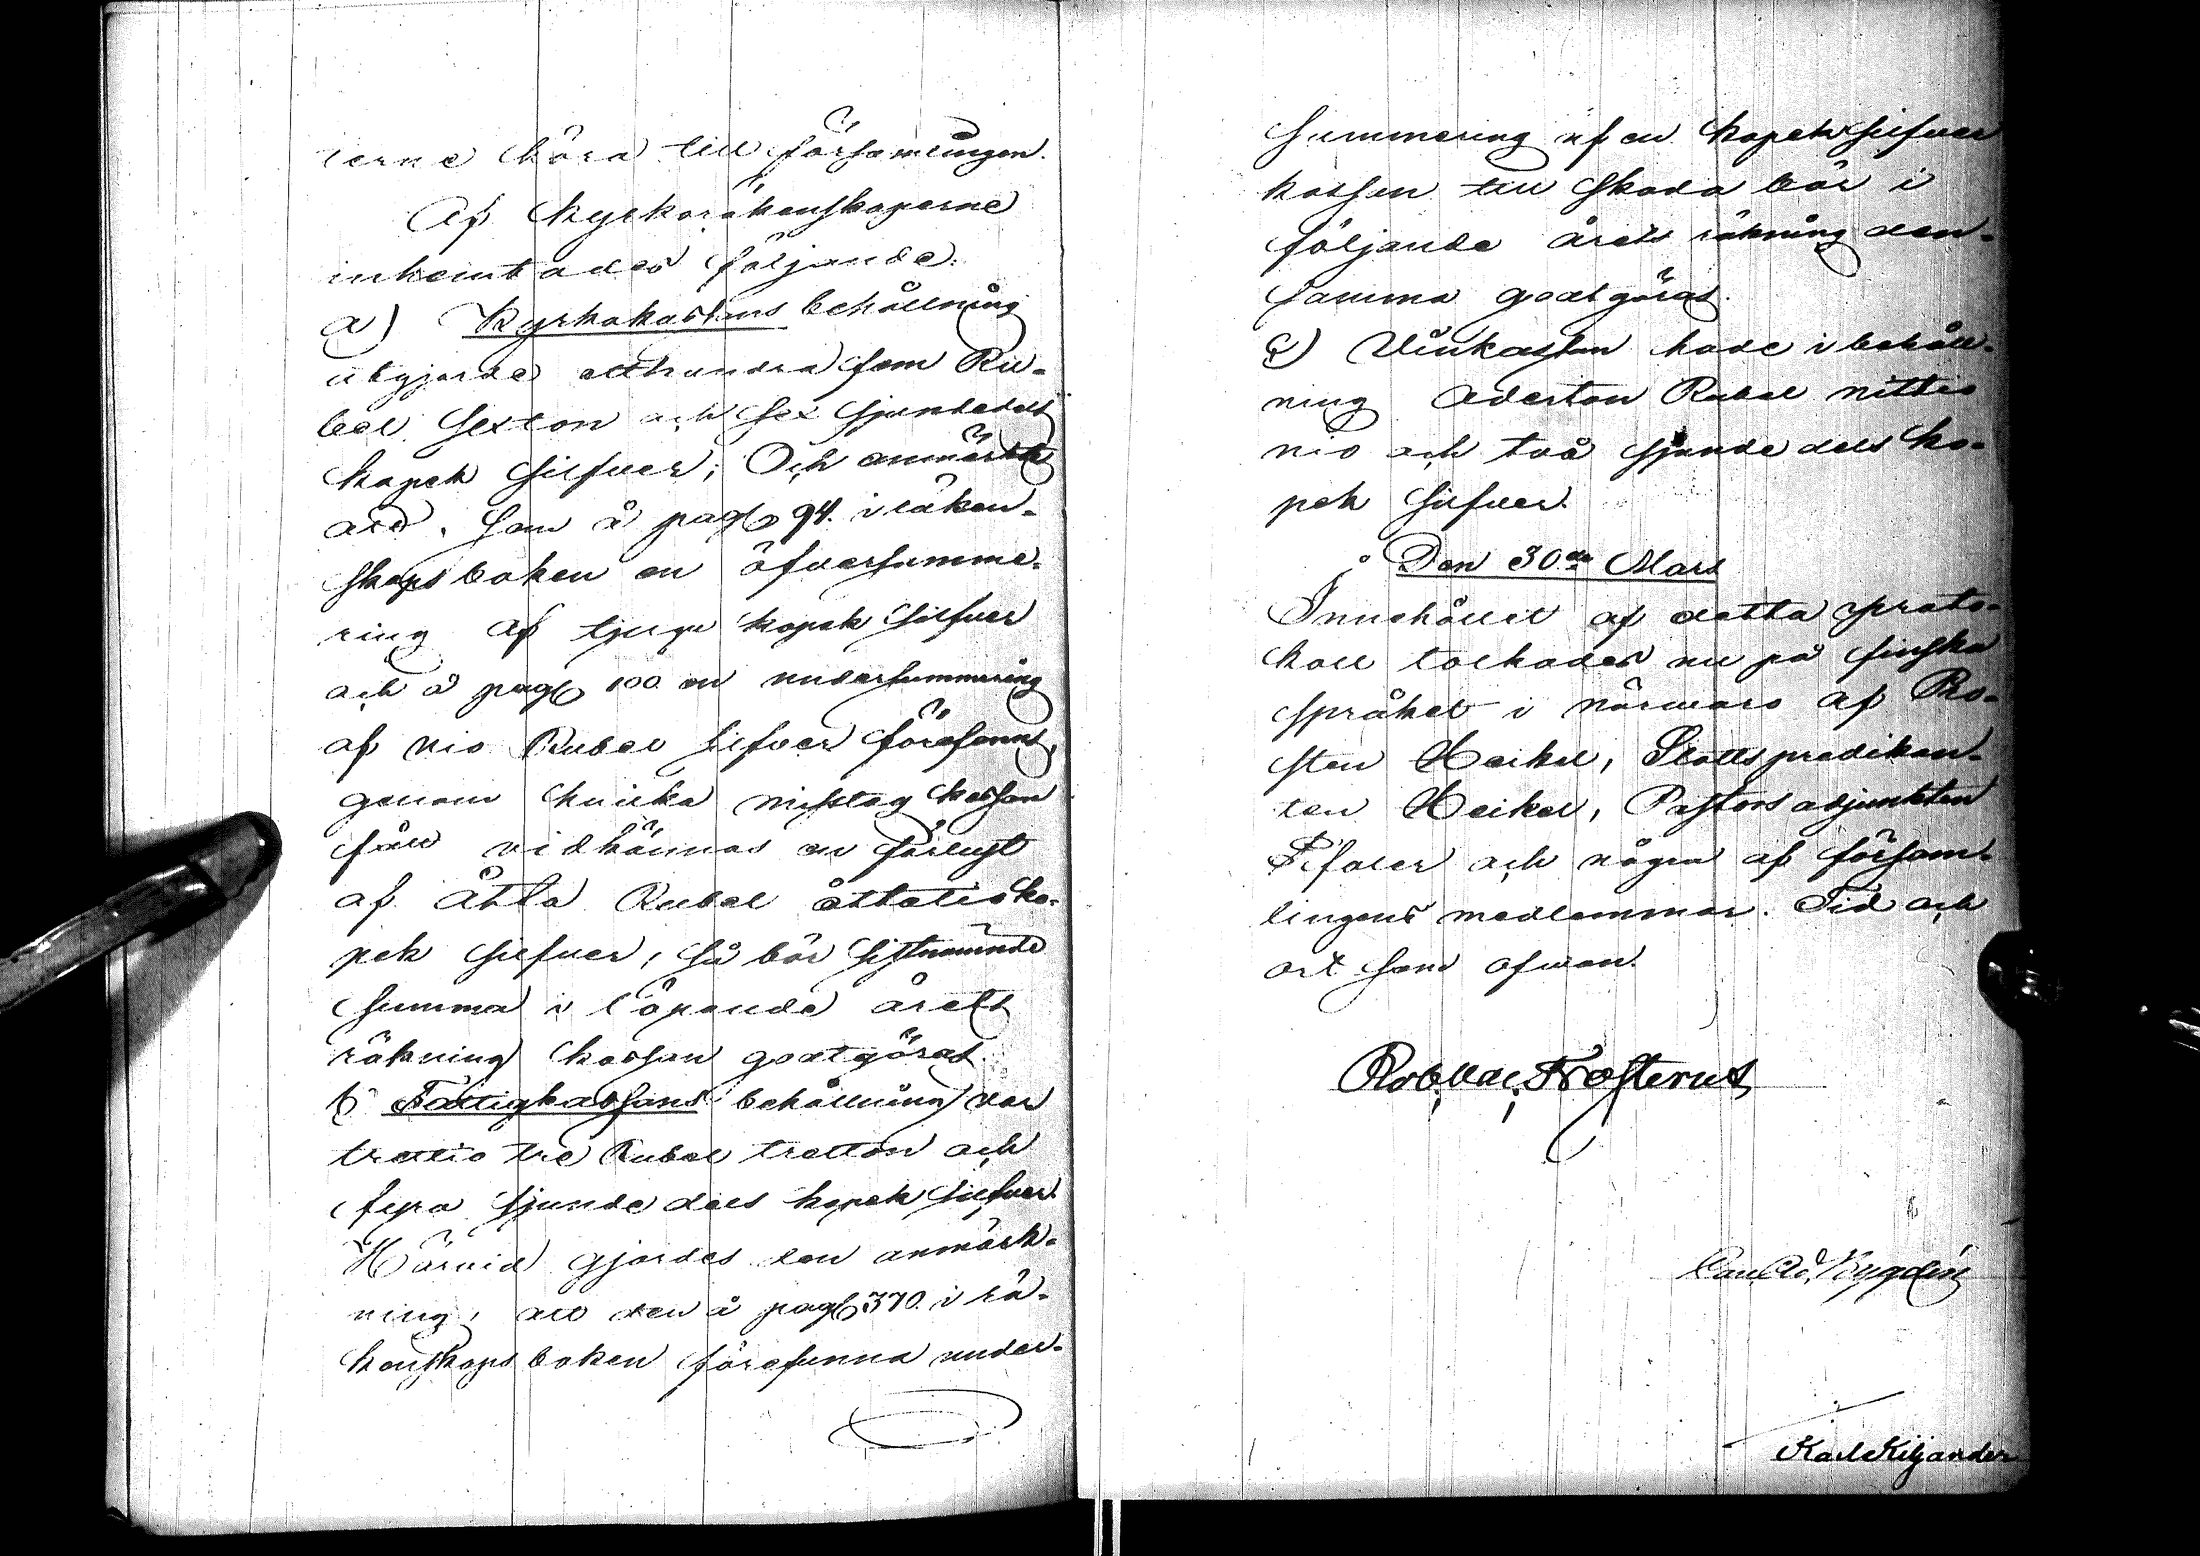 terne höra till församlingen.
Af kyrkoräkenskaperne
inhemtades följande.
a) Kyrkokassans behållning
utgjorde etthundra fem Ru-
bel sexton och sex sjundedels
kopek silfver; Och anmärkte
att, som å pag 94. i räken-
skapsboken en öfversumme-
ring af tjugu kopek silfver
och å pag 100 en undersummering
af nio Rubel silfver förefanns,
genom hvilka misstag kassan
fått vidkännas en förlust
af åtta Rubel åttatio ko-
pek silfver, så bör sistnämnde
summa i löpande årets
räkning kassan godtgöras.
b) Fattigkassans behållning var
trettio tre Rubel tretton och
fyra sjundedels kopek silfver.
Härvid gjordes den anmärk-
ning, att den å pag 370. i rä-
kenskapsboken förefunna under-
summering af en kopek silfver
kassan till skada bör i
följande årets räkning den-
samma godtgöras.
c) Vinkassan hade i behåll-
ning Aderton Rubel nittio
nio och två sjundedels ko-
pek silfver.
Den 30de Mars
Innehållet af detta proto-
koll tolkades nu på finska
språket i närvaro af Pro-
sten Heikel, Slottspredikan-
ten Heikel, Pastorsadjunkten
Pfaler och några af försam-
lingens medlemmar. Tid och
ort som ofvan.
Rob. Val. Frosterus
Carl Ad. Nygrén
Karl Kiljander